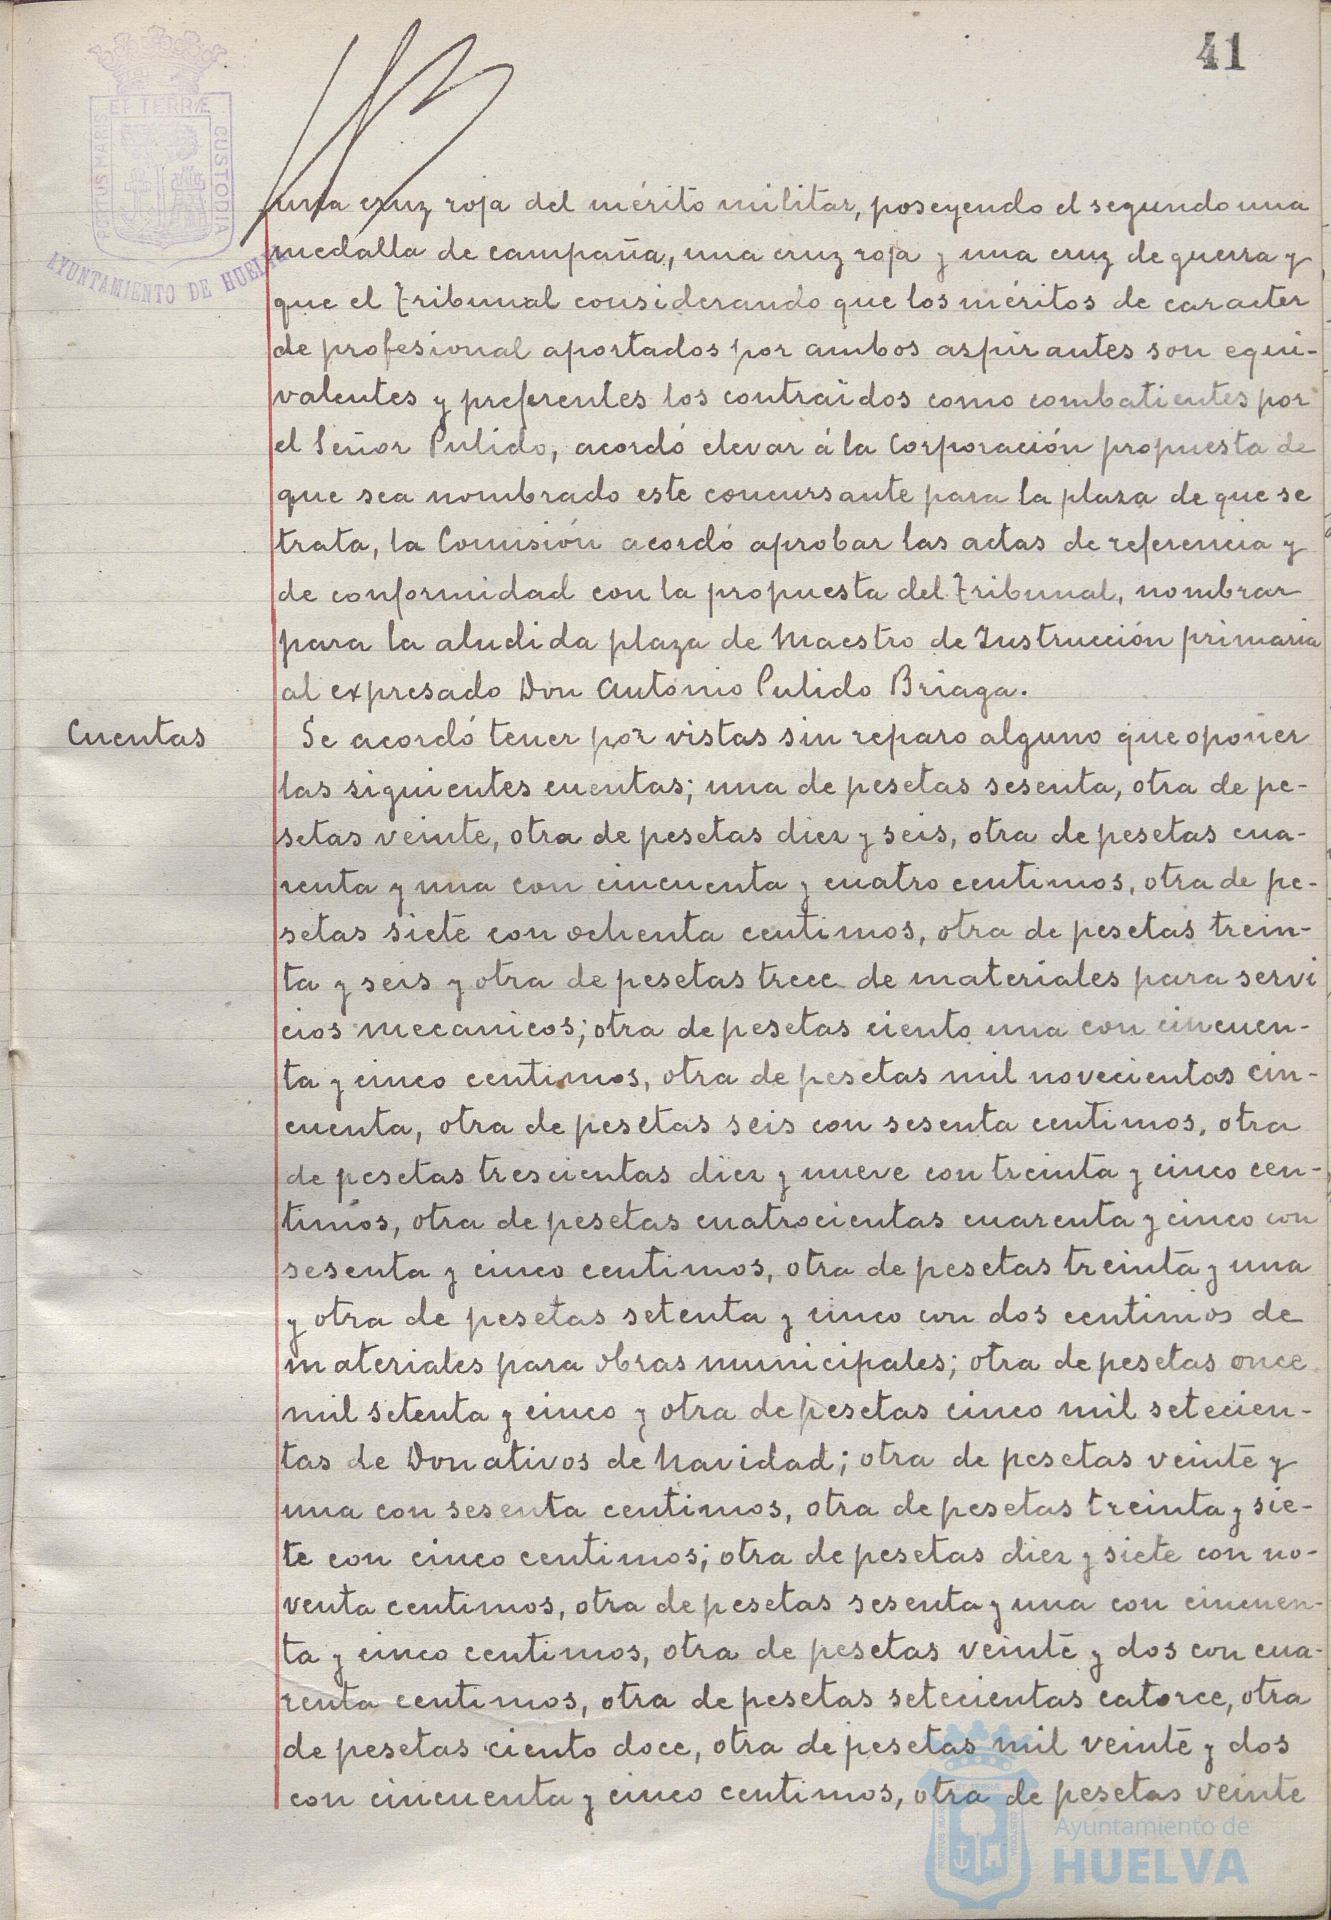 41
PORTUS MARIS ET TERRÆ CUSTODIA
AYUNTAMIENTO DE HUELVA
una cruz roja del mérito militar, poseyendo el segundo una
medalla de campaña, una cruz roja y una cruz de guerra y
que el tribunal considerando que los méritos de caracter
de profesional aportados por ambos aspirantes son equi-
valentes y preferentes los contraidos como combatientes por
el Señor Pulido, acordó elevar á la Corporación propuesta de
que sea nombrado este concursante para la plaza de que se
trata, la Comisión acordó aprobar las actas de referencia y
de conformidad con la propuesta del tribunal, nombrar
para la aludida plaza de Maestro de Instrucción primaria
al expresado Don Antonio Pulido Briaga.
Cuentas
Se acordó tener por vistas sin reparo alguno que oponer
las siguientes cuentas; una de pesetas sesenta, otra de pe-
setas veinte, otra de pesetas diez y seis, otra de pesetas cua-
renta y una con cincuenta y cuatro centimos, otra de pe-
setas siete con ochenta centimos, otra de pesetas trein-
ta y seis y otra de pesetas trece de materiales para servi
cios mecanicos; otra de pesetas ciento una con cincuen-
ta y cinco centimos, otra de pesetas mil novecientas cin-
cuenta, otra de pesetas seis con sesenta centimos, otra
de pesetas trescientas diez y nueve con treinta y cinco cen-
timos, otra de pesetas cuatrocientas cuarenta y cinco con
sesenta y cinco centimos, otra de pesetas treinta y una
y otra de pesetas setenta y cinco con dos centimos de
materiales para obras municipales; otra de pesetas once
mil setenta y cinco y otra de pesetas cinco mil setecien-
tas de Donativos de Navidad; otra de pesetas veinte y
una con sesenta centimos, otra de pesetas treinta y sie-
te con cinco centimos; otra de pesetas diez y siete con no-
venta centimos, otra de pesetas sesenta y una con cincuen-
ta y cinco centimos, otra de pesetas veinte y dos con cua-
renta centimos, otra de pesetas setecientas catorce, otra
de pesetas ciento doce, otra de pesetas mil veinte y dos
con cincuenta y cinco centimos, otra de pesetas veinte
Ayuntamiento de
HUELVA